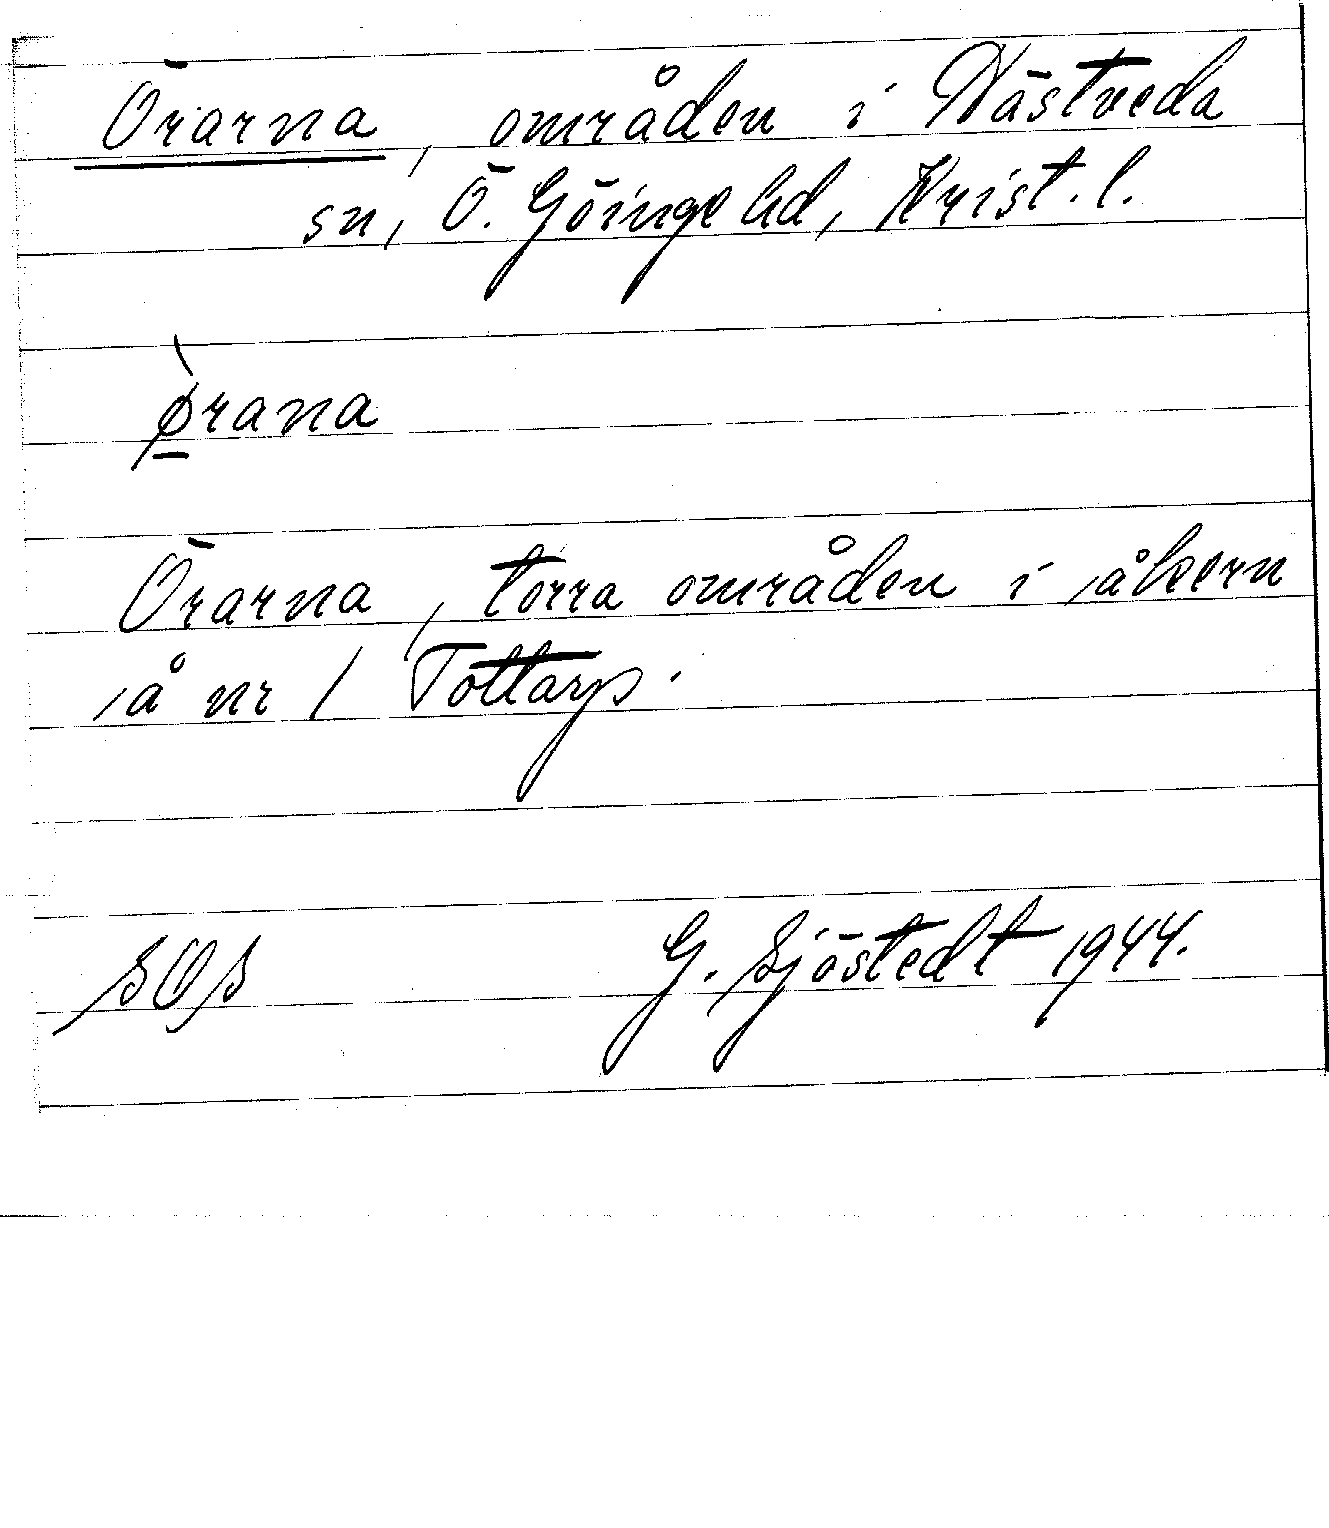 Örarna, områden i Nästveda
sn, Ö. Göinge hd, Krist. l.
ø̱̀rana
Örarna, torra områden i åkern
å nr 1 Tottarp.
SOS G. Sjöstedt 1944.